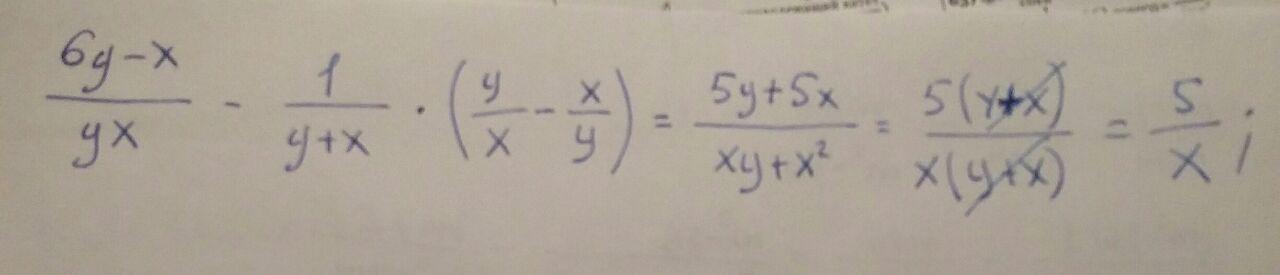 6y-x/yx - 1/y+x · (y/x - x/y) = 5y+5x/xy+x² = 5(y+x)/x(y+x) = 5/x ;